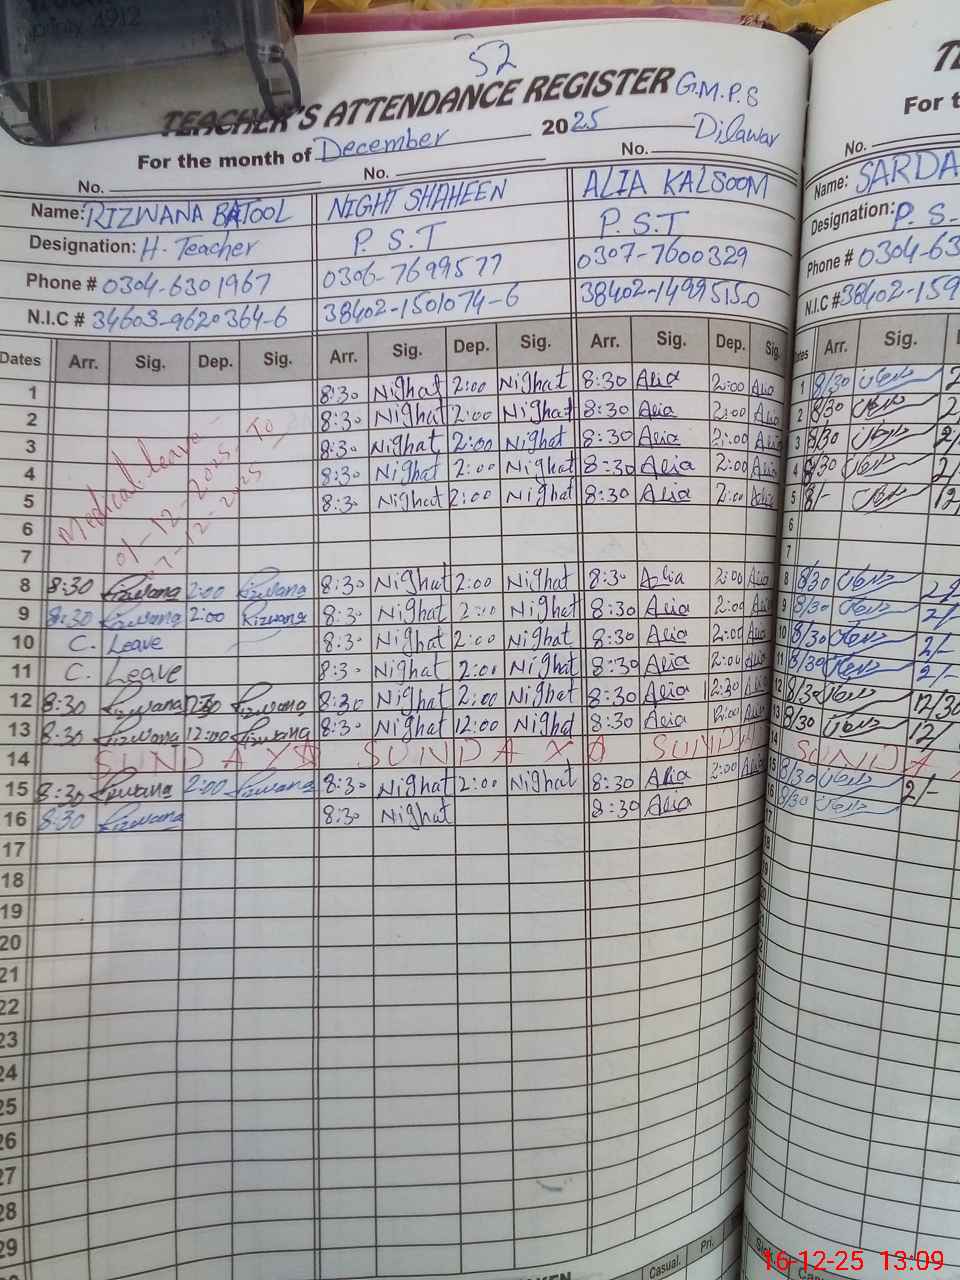 52
TEACHER'S ATTENDANCE REGISTER G.M.P.S
For the month of December 2025 Dilawar
No. No. No.
Name: RIZWANA BATOOL NIGHT SHAHEEN ALIA KALSOOM
Designation: H. Teacher P. S.T P. S.T
Phone # 0304-6301967 0306-7699577 0307-7600329
N.I.C # 34603-9620364-6 38402-1501074-6 38402-1499515-0
Dates Arr. Sig. Dep. Sig. Arr. Sig. Dep. Sig. Arr. Sig. Dep. Sig.
1 8:30 Nighat 2:00 Nighat 8:30 Alia 2:00 Alia
2 8:30 Nighat 2:00 Nighat 8:30 Alia 2:00 Alia
3 8:30 Nighat 2:00 Nighat 8:30 Alia 2:00 Alia
4 8:30 Nighat 2:00 Nighat 8:30 Alia 2:00 Alia
5 8:30 Nighat 2:00 Nighat 8:30 Alia 2:00 Alia
Medical leave
01-12-2025 To
7-12-2025
6
7
8 8:30 Rizwana 2:00 Rizwana 8:30 Nighat 2:00 Nighat 8:30 Alia 2:00 Alia
9 8:30 Rizwana 2:00 Rizwana 8:30 Nighat 2:00 Nighat 8:30 Alia 2:00 Alia
10 C. Leave 8:30 Nighat 2:00 Nighat 8:30 Alia 2:00 Alia
11 C. Leave 8:30 Nighat 2:00 Nighat 8:30 Alia 2:00 Alia
12 8:30 Rizwana Rizwana 8:30 Nighat 2:00 Nighat 8:30 Alia 2:30 Alia
13 8:30 Rizwana 12:00 Rizwana 8:30 Nighat 12:00 Nighat 8:30 Alia Alia
14 SUNDAY SUNDAY SUNDA
15 8:30 Rizwana 2:00 Rizwana 8:30 Nighat 2:00 Nighat 8:30 Alia 2:00 Alia
16 8:30 Rizwana 8:30 Nighat 8:30 Alia
17
18
19
20
21
22
23
24
25
26
27
28
29
Casual. Pri.
For
No.
Name: SARDA
Designation: P. S.
Phone # 0304-63
N.I.C # 38402-159
Arr. Sig.
1 8/30
2 8/30
3 8/30
4 8/30
5 8/-
6
7
8 8/30
9 8/30 2/-
10 8/30 2/-
11 8/30 2/-
12 8/30 12/30
13 8/30 12/
14 SUNDA
15 8/30 2/-
16 8/30
16-12-25 13:09